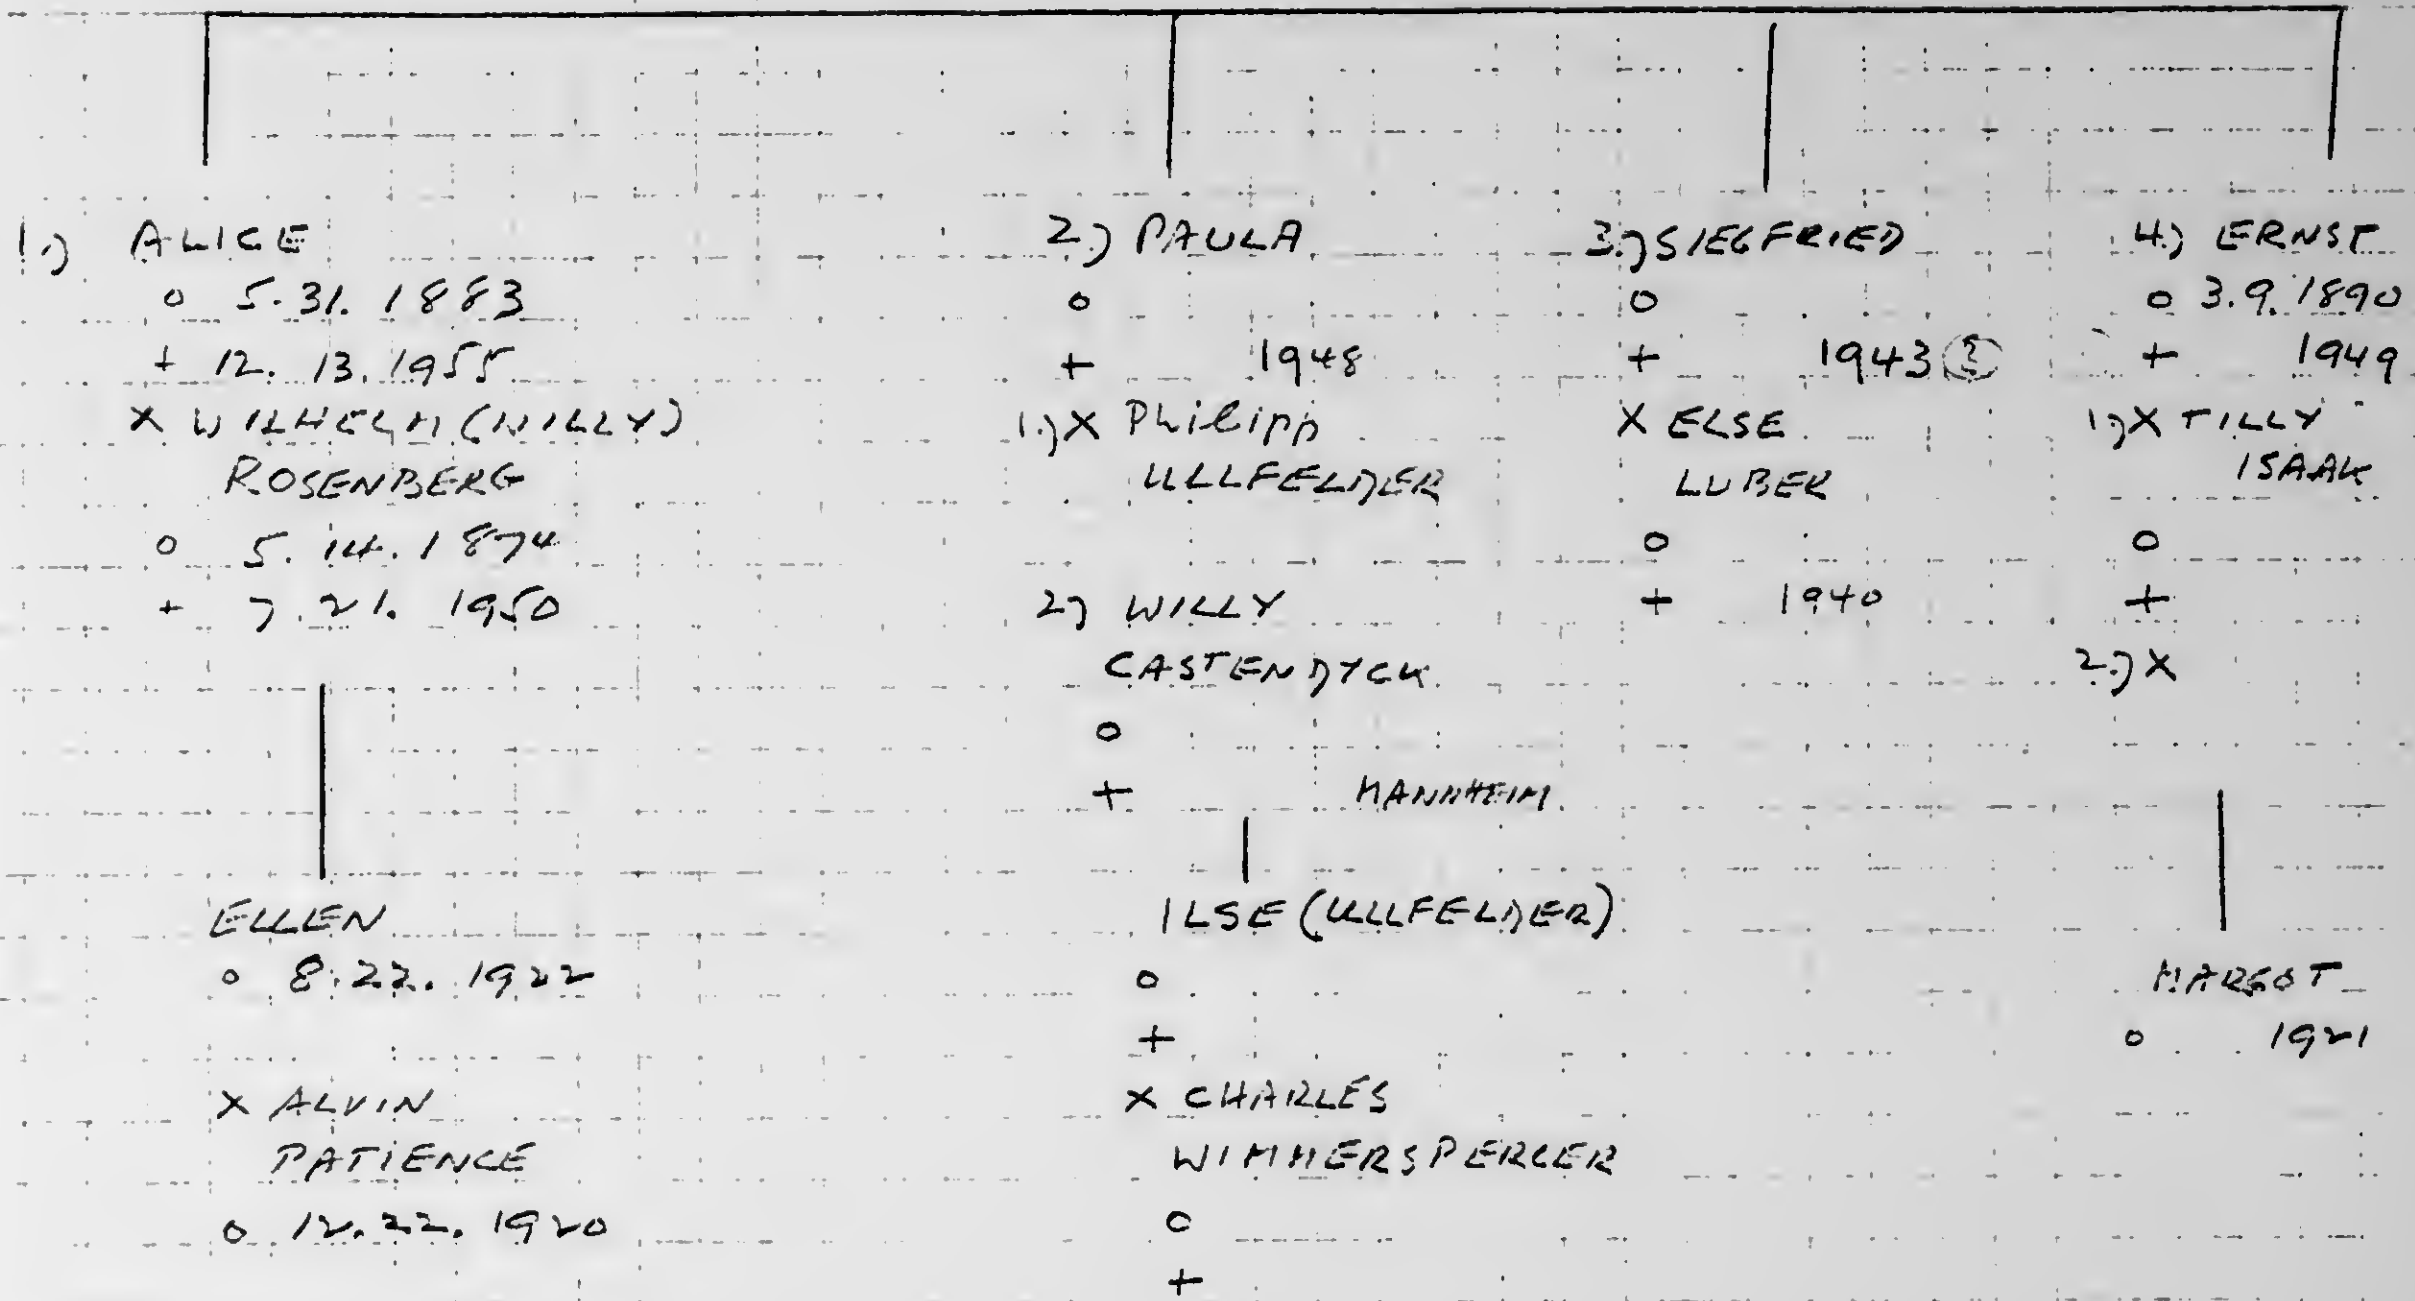 1.) ALICE
o 5.31.1883
+ 12.13.1955
X WILHELM (WILLY)
ROSENBERG
o 5.14.1874
+ 7.21.1950
ELLEN
o 8.22.1922
X ALVIN
PATIENCE
o 12.22.1920
2.) PAULA
o
+ 1948
1.) X Philipp
ULLFELDER
2.) WILLY
CASTENDYCK
o
+ MANNHEIM
ILSE (ULLFELDER)
o
+
X CHARLES
WIMMERSPERGER
o
+
3.) SIEGFRIED
o
+ 1943 (?)
X ELSE
LUBER
o
+ 1940
4.) ERNST
o 3.9.1890
+ 1949
1.) X TILLY
ISAAK
o
+
2.) X
MARGOT
o 1921